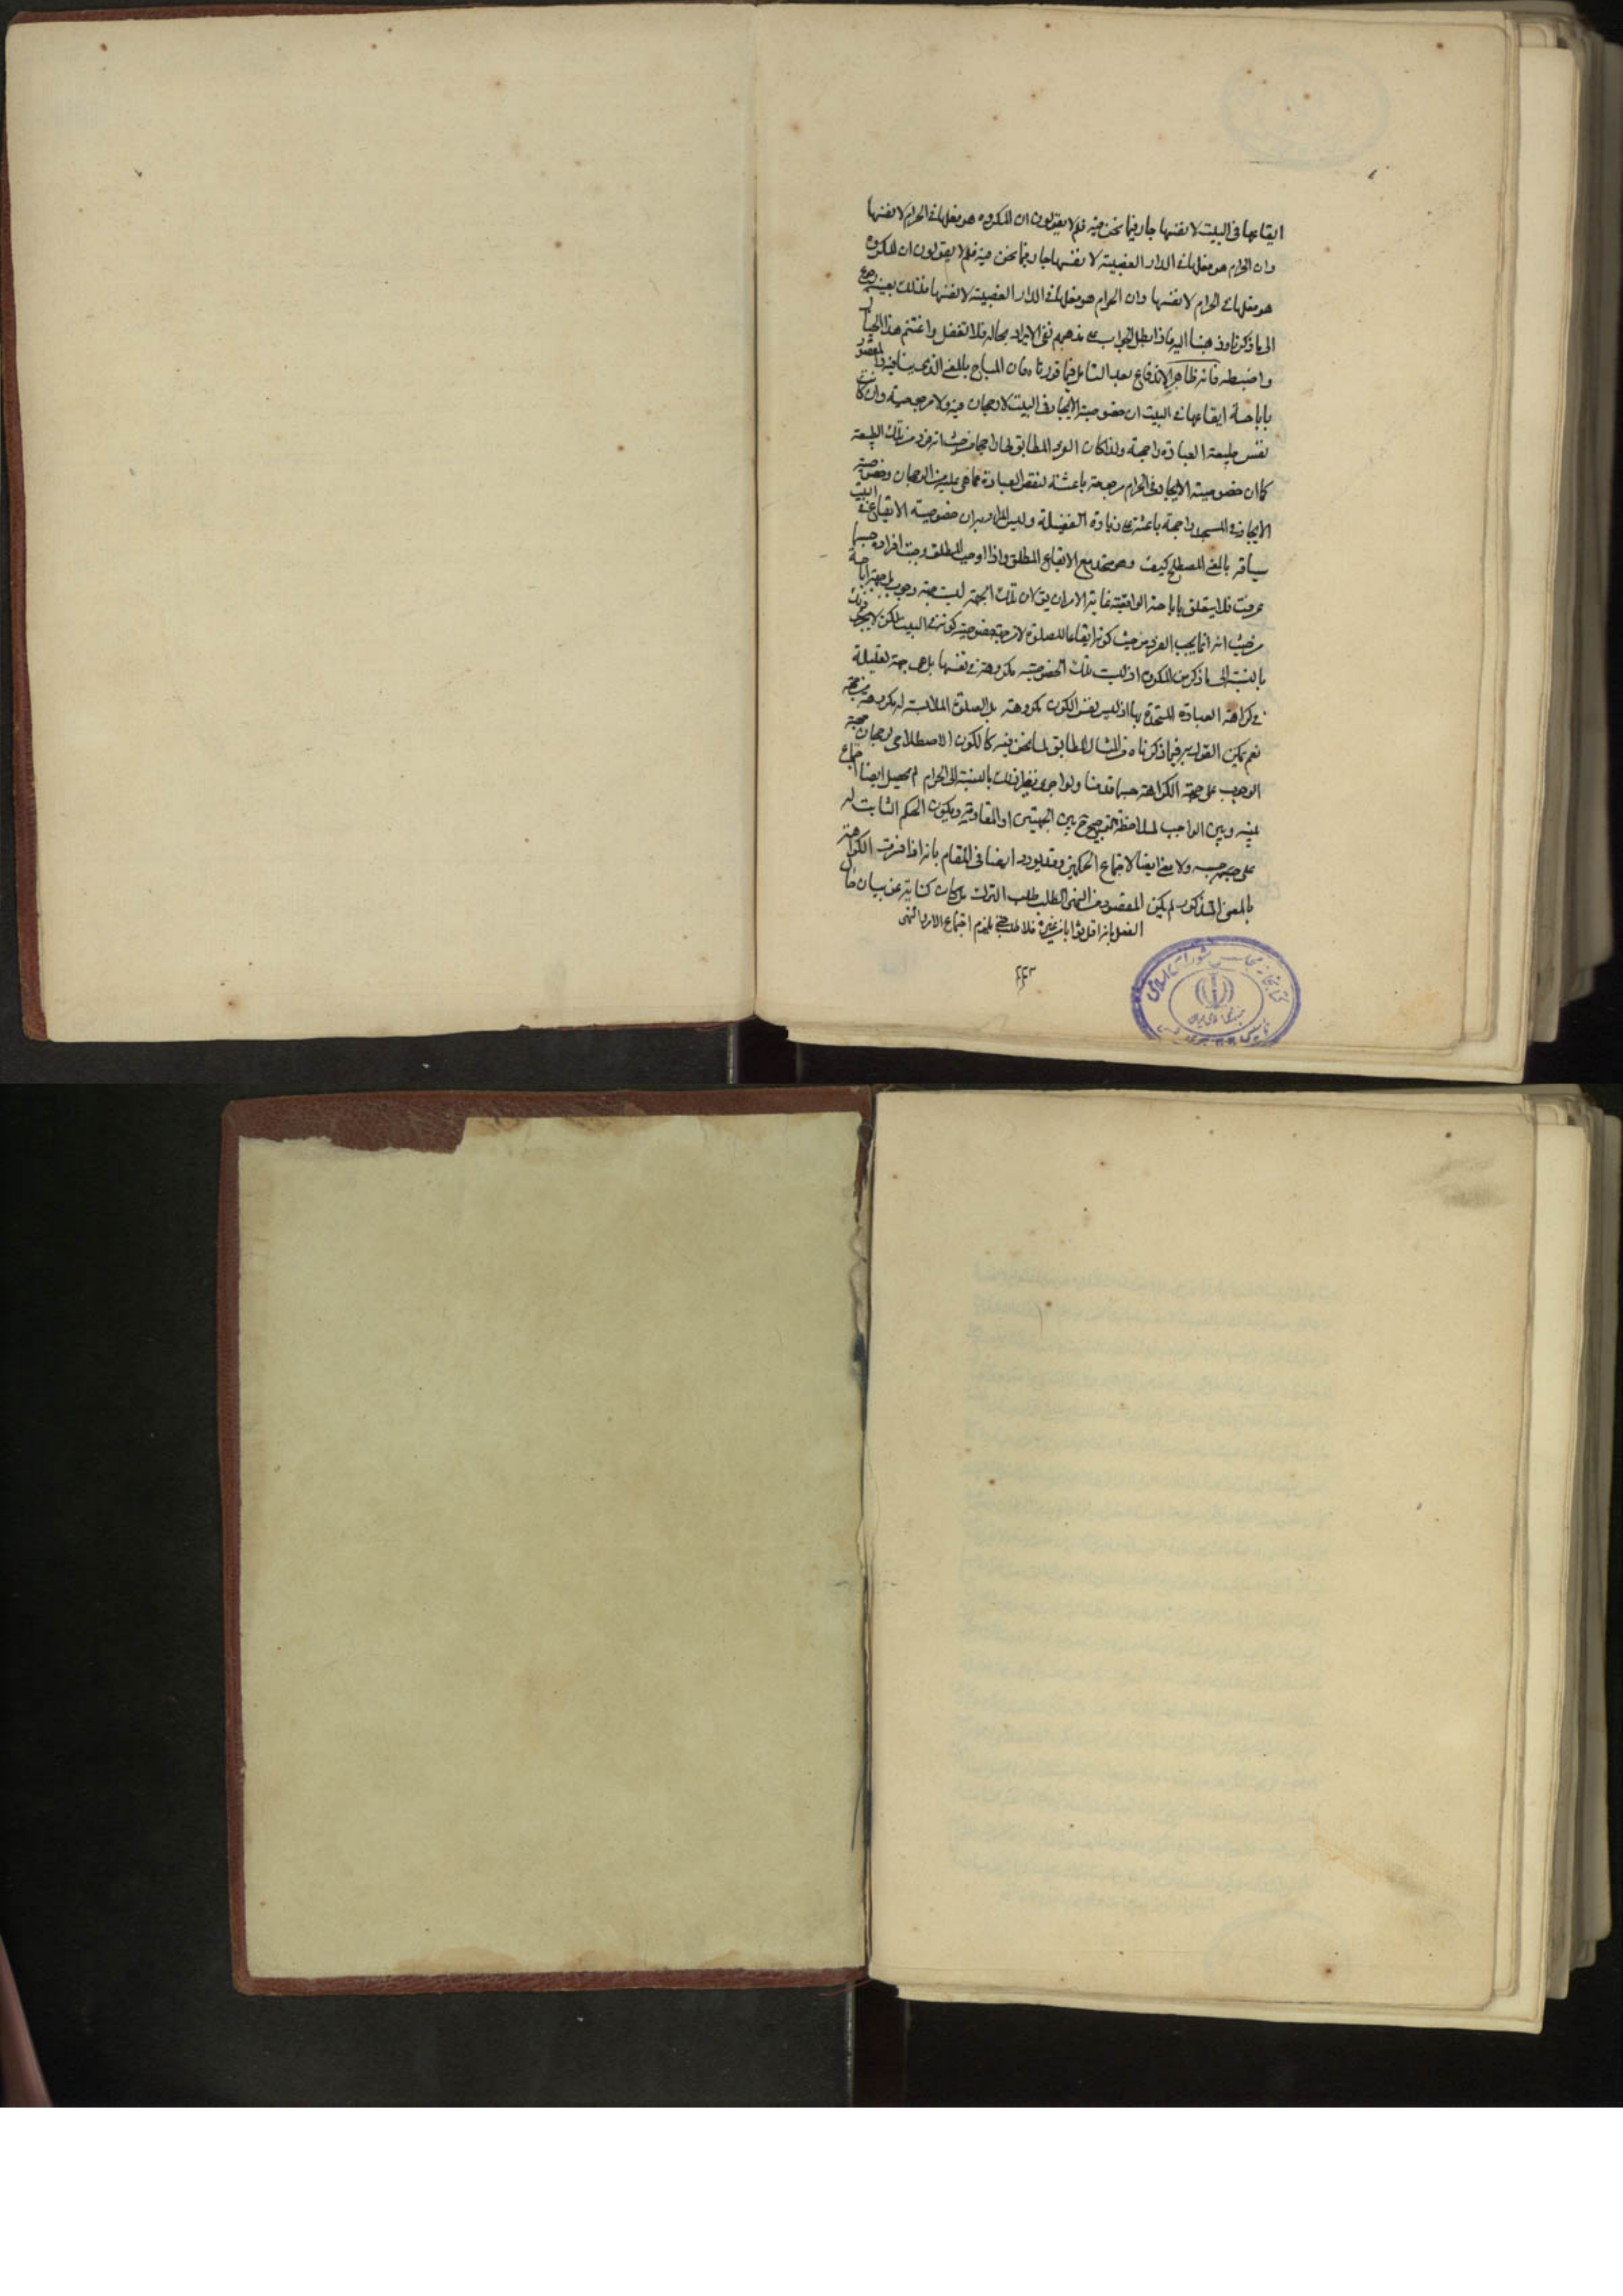 ايقاعها فى البيت لا نفسها جار فيما نحن فيه فلم لا يقولون ان المكروه هو فعلها فى الحرام لا نفسها
وان الحرام هو فعلها فى الدار الغصبية لا نفسها جار فيما نحن فيه فلم لا يقولون ان المكروه
هو فعلها فى الحرام لا نفسها وان الحرام هو فعلها فى الدار الغصبية لا نفسها فذلك بعينه رجوع
الى ما ذكرنا وذهبنا اليه واذا بطل الجواب على مذهبهم بقى الايراد بحاله فلا تغفل واغتنم هذا
واضبطه فانه ظاهر الاندفاع بعد التامل فيما قررناه فان المباح بالمعنى الذى ينافيه
باباحة ايقاعها فى البيت ان خصوصية الايجاد فى البيت لا رجحان فيه ولا مرجوحية وان كانت
نفس طبيعة العبادة راجحة ولذا كان الفرد المطابق لها راجحا من حيث انه فرد من تلك الطبيعة
كما ان خصوصية الايجاد فى الحرام مرجوحة باعثة لنقص العبادة عما هى عليه من الرجحان وخصوصية
الايجاد فى المسجد راجحة باعثة على زيادة الفضيلة وليس المراد به ان خصوصية الايقاع فى البيت
مباح بالمعنى المصطلح كيف وهو متحد مع الايقاع المطلق واذا وجب المطلق وجبت افراده حسبما
عرفت فلا يتعلق باباحته الواقعية غاية الامر ان يق ان تلك الجهة ليست جهة وجوب بل جهة اباحة
من حيث انه انما يجب الفرد من حيث كونه ايقاعا للصلوة لا من جهة خصوصية كونه فى البيت لكن لا يجرى ذلك
بالنسبة الى ما ذكر من المكروه اذ ليست تلك الخصوصية مكروهة فى نفسها بل هى جهة تعليلية
فى كراهة العبادة المتحدة بها اذ ليس نفس الكون مكروهة بل الصلوة الملابسة له مكروهة
نعم يمكن القول به فيما ذكرناه من المثال المطابق لما نحن فيه كالكون الاصطلاحى لرجحان جهة
الوجوب على جهة الكراهة حسبما قدمنا ولو اجرى نظير ذلك بالنسبة الى الحرام لم يحصل ايضا اجتماع
بينه وبين الواجب لملاحظة الترجيح ح بين الجهتين او المقاومة ويكون الحكم الثابت له
على حسبه ولا معنى ايضا لاجتماع الحكمين وقد يورد ايضا فى المقام بانه اذا فسرت الكراهة
بالمعنى المذكور لم يكن المقصود من النهى الطلب طلب الترك بل كان كناية عن بيان حال
الفعل بانه اقل ثوابا من غيره فلا طلب حتى يلزم اجتماع الامر والنهى
كتابخانه مجلس شوراى